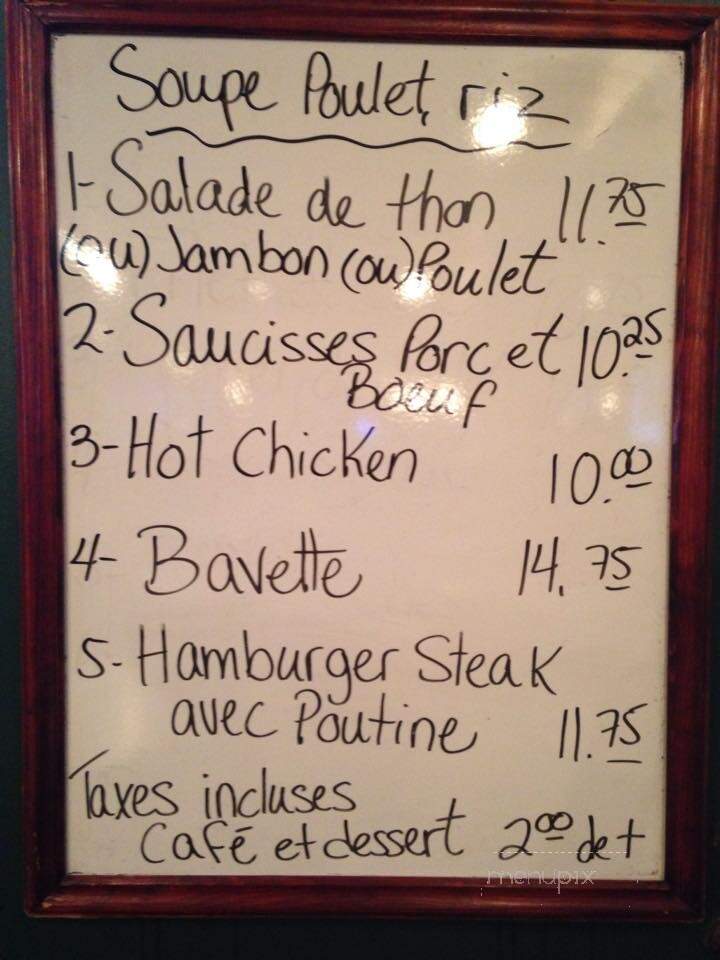 Soupe Poulet, riz
1- Salade de thon 11.75
(ou) Jambon (ou) Poulet
2- Saucisses Porc et 10.25
Boeuf
3- Hot Chicken 10.00
4- Bavette 14.75
5- Hamburger Steak
avec Poutine 11.75
Taxes incluses
Café et dessert 2.00 de +
menupix